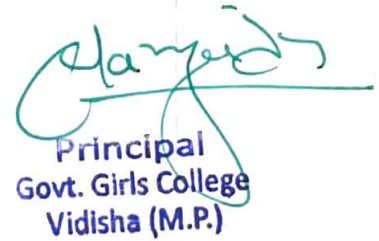 Principal
Govt. Girls College
Vidisha (M.P.)